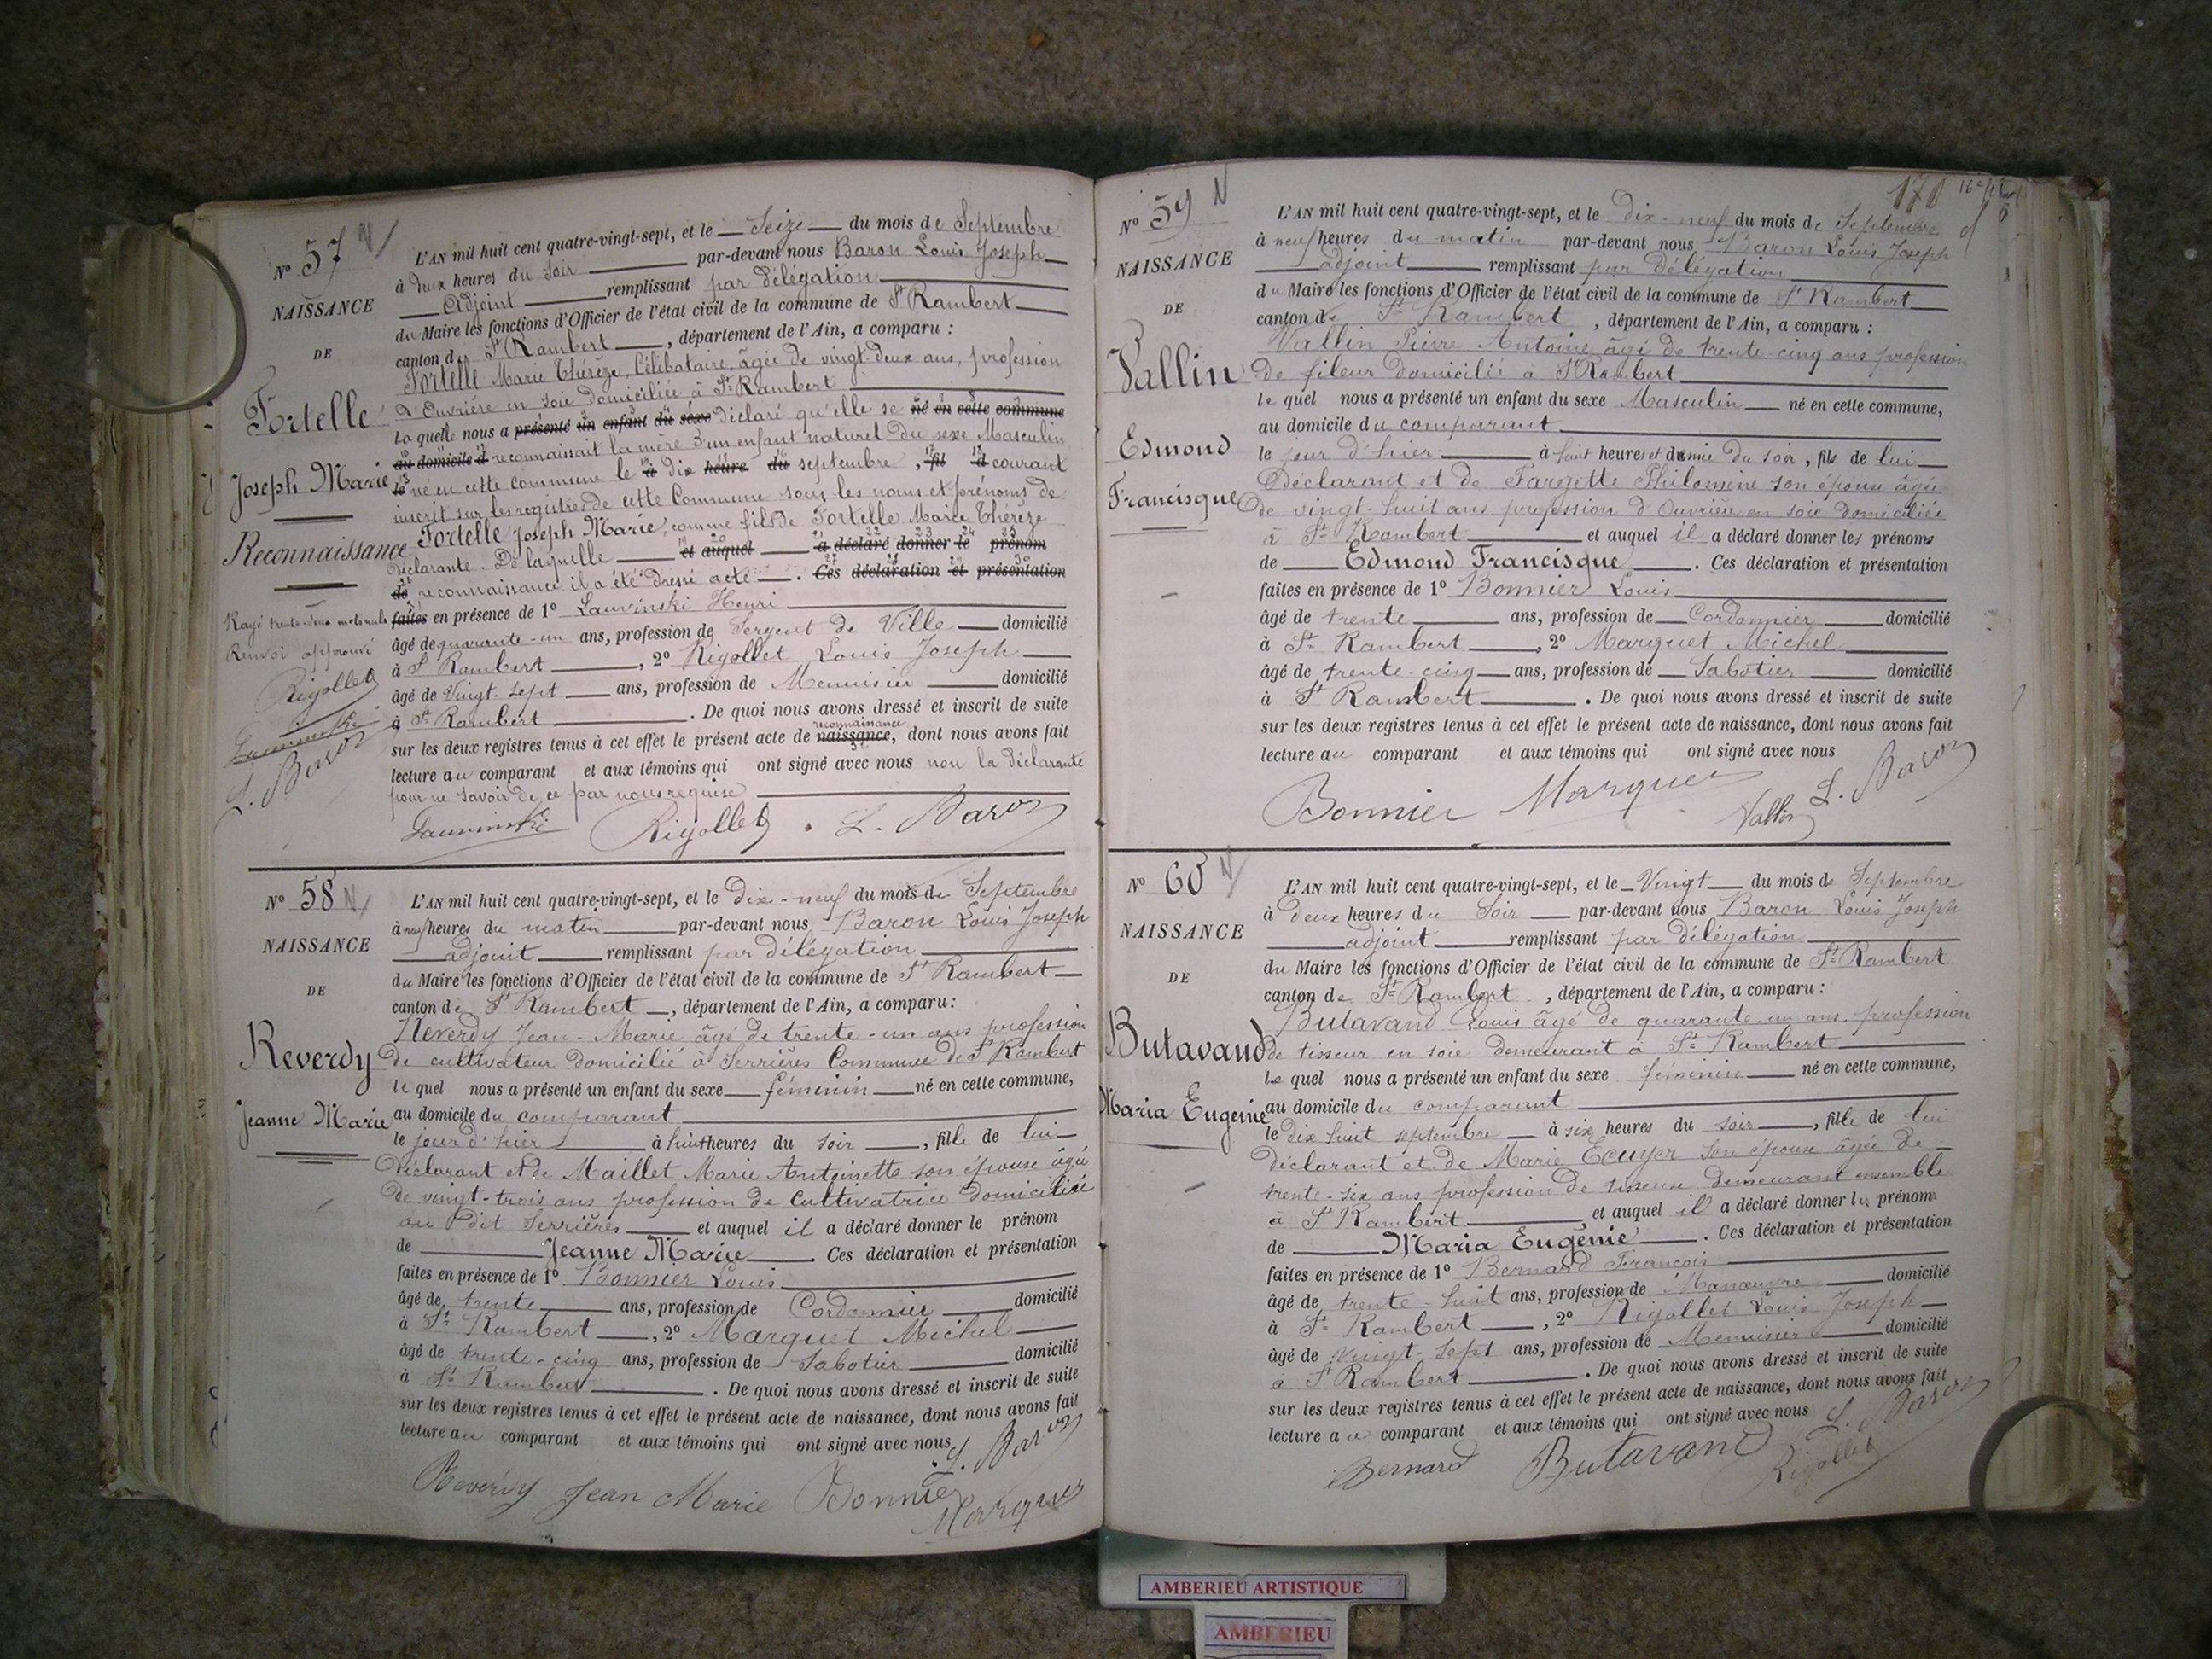 N° 57
NAISSANCE
DE
Fortelle
Joseph Marie
Reconnaissance
Rayé trente-deux mots nuls
Renvoi approuvé
Rigollet
Lauvinski
L. Baron
L'AN mil huit cent quatre-vingt-sept, et le Seize du mois de Septembre
à deux heures du Soir par-devant nous Baron Louis Joseph
Adjoint remplissant par délégation
du Maire les fonctions d'Officier de l'état civil de la commune de St Rambert
canton de St Rambert, département de l'Ain, a comparu :
Fortelle Marie Thérèze, Célibataire, âgée de vingt-deux ans, profession
d'Ouvrière en soie domiciliée à St Rambert
La quelle nous a présenté un enfant du sexe déclaré qu'elle se né en cette commune
au domicile d reconnaissait la mère d'un enfant naturel du sexe Masculin
le né en cette Commune le à dix heure du septembre, fil d courant
inscrit sur les registres de cette Commune sous les noms et prénoms de
Fortelle Joseph Marie, comme fils de Fortelle Marie Thérèze
déclarante. De laquelle et auquel a déclaré donner le prénom
de reconnaissance il a été dressé acte. Ces déclaration et présentation
faites en présence de 1° Lauvinski Henri
âgé de quarante-un ans, profession de Sergent de Ville domicilié
à St Rambert, 2° Rigollet Louis Joseph
âgé de Vingt-sept ans, profession de Menuisier domicilié
à St Rambert. De quoi nous avons dressé et inscrit de suite
reconnaissance
sur les deux registres tenus à cet effet le présent acte de naissance, dont nous avons fait
lecture au comparant et aux témoins qui ont signé avec nous non la déclarante
pour ne savoir de ce par nous requise
Lauvinski Rigollet L. Baron
N° 58
NAISSANCE
DE
Reverdy
Jeanne Marie
L'AN mil huit cent quatre-vingt-sept, et le dix-neuf du mois de Septembre
à neuf heures du matin par-devant nous Baron Louis Joseph
adjoint remplissant par délégation
du Maire les fonctions d'Officier de l'état civil de la commune de St Rambert
canton de St Rambert, département de l'Ain, a comparu :
Reverdy Jean-Marie âgé de trente-un ans profession
de cultivateur domicilié à Serrières Commune de St Rambert
le quel nous a présenté un enfant du sexe féminin né en cette commune,
au domicile du comparant
le jour d'hier à huit heures du soir, fille de lui
déclarant et de Maillet Marie Antoinette son épouse âgée
de vingt-trois ans profession de Cultivatrice domiciliée
au dit Serrières et auquel il a déclaré donner le prénom
de Jeanne Marie. Ces déclaration et présentation
faites en présence de 1° Bonnier Louis
âgé de trente ans, profession de Cordonnier domicilié
à St Rambert, 2° Marguet Michel
âgé de trente-cinq ans, profession de Sabotier domicilié
à St Rambert. De quoi nous avons dressé et inscrit de suite
sur les deux registres tenus à cet effet le présent acte de naissance, dont nous avons fait
lecture au comparant et aux témoins qui ont signé avec nous
L. Baron
Reverdy Jean Marie Bonnier
Marguet
171
N° 59
NAISSANCE
DE
Vallin
Edmond
Francisque
L'AN mil huit cent quatre-vingt-sept, et le dix-neuf du mois de Septembre
à neuf heures du matin par-devant nous Baron Louis Joseph
adjoint remplissant par délégation
du Maire les fonctions d'Officier de l'état civil de la commune de St Rambert
canton de St Rambert, département de l'Ain, a comparu :
Vallin Pierre Antoine âgé de trente-cinq ans profession
de fileur domicilié à St Rambert
le quel nous a présenté un enfant du sexe Masculin né en cette commune,
au domicile du comparant
le jour d'hier à huit heures et demie du soir, fils de lui
Déclarant et de Fargette Philomène son épouse âgée
de vingt-huit ans profession d'Ouvrière en soie domiciliée
à St Rambert et auquel il a déclaré donner les prénoms
de Edmond Francisque. Ces déclaration et présentation
faites en présence de 1° Bonnier Louis
âgé de trente ans, profession de Cordonnier domicilié
à St Rambert, 2° Marguet Michel
âgé de trente-cinq ans, profession de Sabotier domicilié
à St Rambert. De quoi nous avons dressé et inscrit de suite
sur les deux registres tenus à cet effet le présent acte de naissance, dont nous avons fait
lecture au comparant et aux témoins qui ont signé avec nous
Bonnier Marguet Vallin L. Baron
N° 60
NAISSANCE
DE
Butavand
Maria Eugénie
L'AN mil huit cent quatre-vingt-sept, et le Vingt du mois de Septembre
à deux heures du Soir par-devant nous Baron Louis Joseph
adjoint remplissant par délégation
du Maire les fonctions d'Officier de l'état civil de la commune de St Rambert
canton de St Rambert, département de l'Ain, a comparu :
Butavand Louis âgé de quarante-un ans, profession
de tisseur en soie demeurant à St Rambert
Le quel nous a présenté un enfant du sexe féminin né en cette commune,
au domicile du comparant
le dix huit septembre à six heures du soir, fille de lui
déclarant et de Marie Ecuyer son épouse âgée de
trente-six ans profession de tisseuse demeurant ensemble
à St Rambert et auquel il a déclaré donner les prénoms
de Maria Eugénie. Ces déclaration et présentation
faites en présence de 1° Bernard François
âgé de trente-huit ans, profession de Manœuvre domicilié
à St Rambert, 2° Rigollet Louis Joseph
âgé de Vingt-Sept ans, profession de Menuisier domicilié
à St Rambert. De quoi nous avons dressé et inscrit de suite
sur les deux registres tenus à cet effet le présent acte de naissance, dont nous avons fait
lecture au comparant et aux témoins qui ont signé avec nous L. Baron
Bernard Butavand Rigollet
AMBERIEU ARTISTIQUE
AMBERIEU